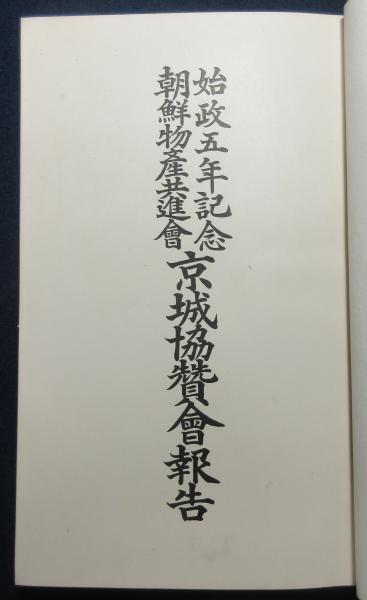 始政五年記念
朝鮮物產共進會
京城協贊會報告